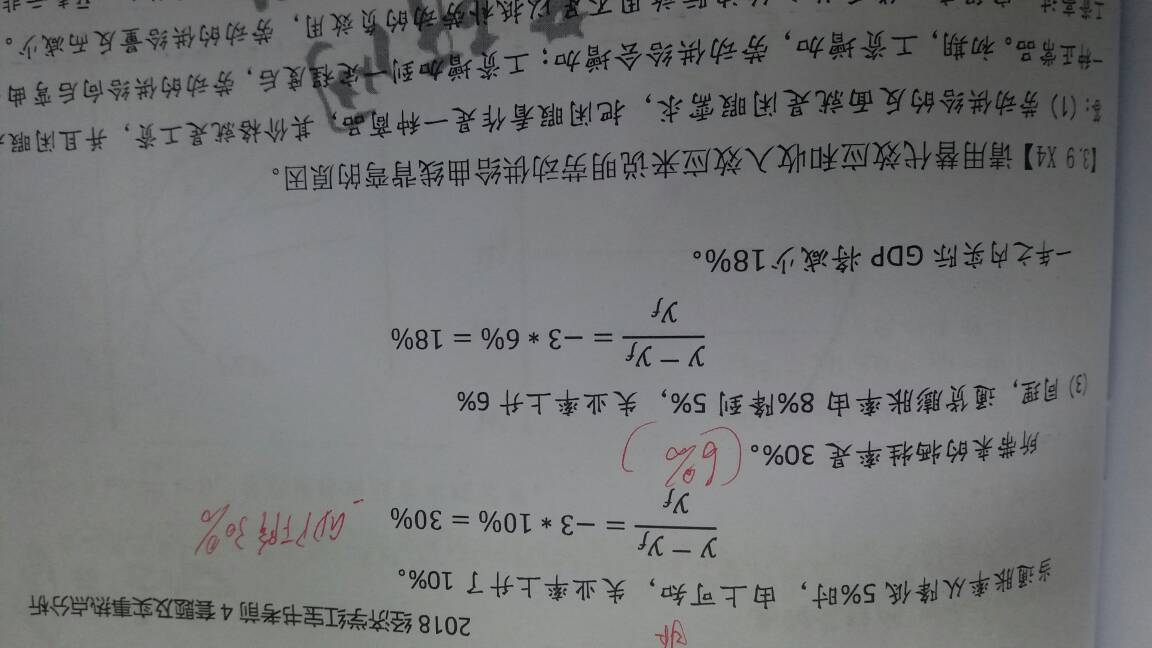 2018 经济学红宝书考前 4 套题及实事热点分析
当通胀率从降低 5%时，由上可知，失业率上升了 10%。
y − y_f / y_f = −3 * 10% = 30%
GDP下降30%
所带来的牺牲率是 30%。(6%)
(3) 同理，通货膨胀率由 8%降到 5%，失业率上升 6%
y − y_f / y_f = −3 * 6% = 18%
一年之内实际 GDP 将减少 18%。
【3.9 X4】请用替代效应和收入效应来说明劳动供给曲线背弯的原因。
答：(1) 劳动供给的反面就是闲暇需求，把闲暇看作是一种商品，其价格就是工资，并且闲暇
一种正常品。初期，工资增加，劳动供给会增加；工资增加到一定程度后，劳动的供给向后弯曲
不足以抵补劳动的负效用，劳动的供给量反而减少。